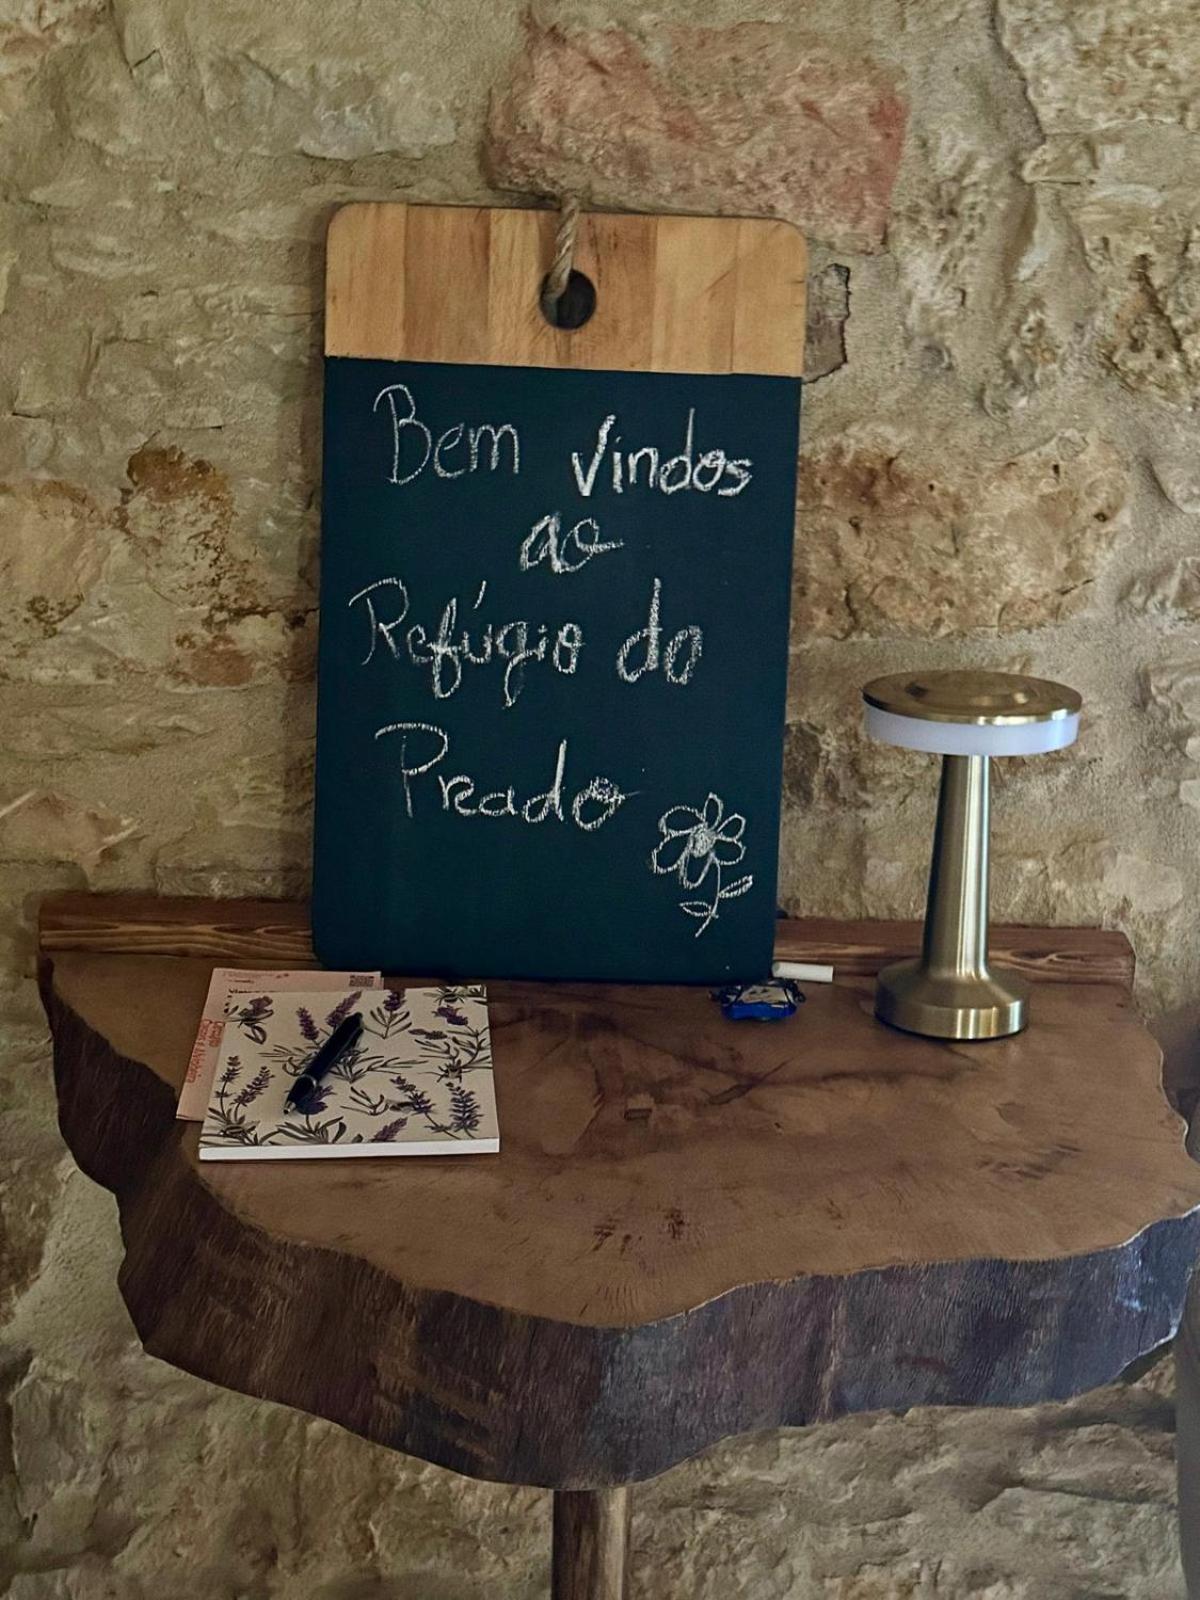 Bem Vindos
ao
Refúgio do
Prado